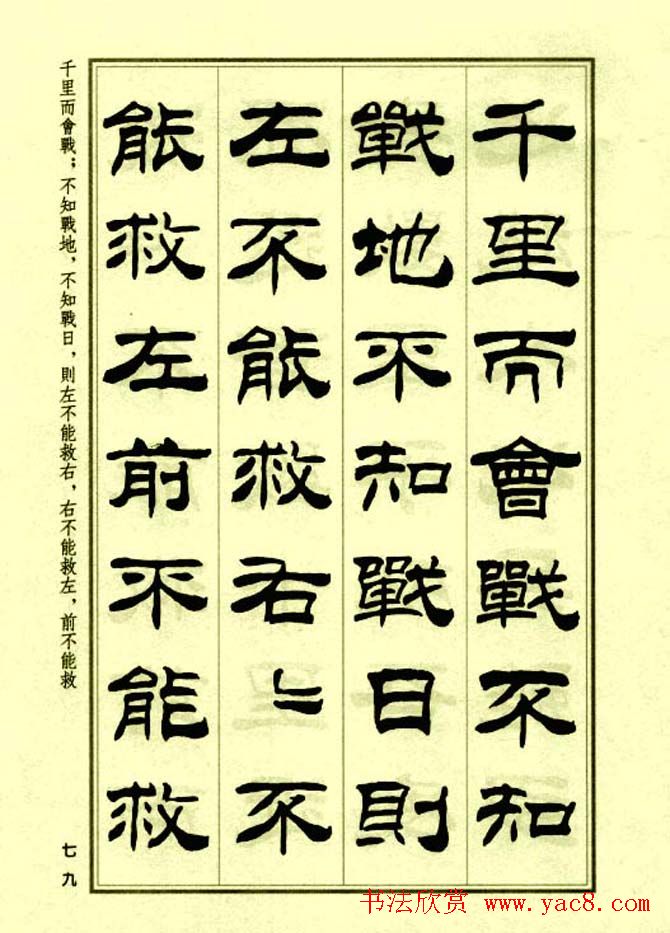 千里而會戰不知
戰地不知戰日則
左不能救右〻不
能救左前不能救
千里而會戰；不知戰地，不知戰日，則左不能救右，右不能救左，前不能救
七九
书法欣赏 www.yac8.com